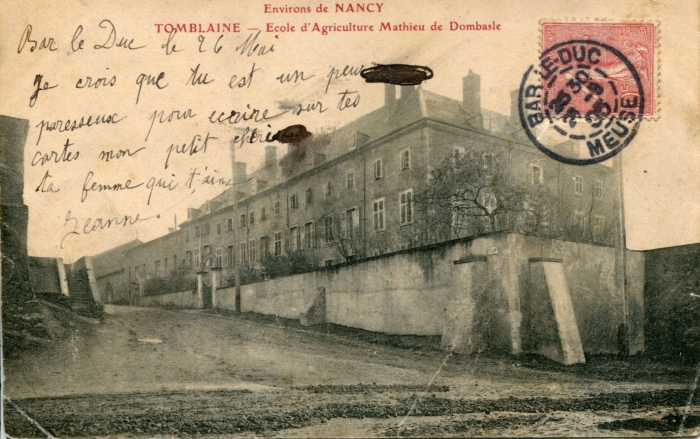 Environs de NANCY
TOMBLAINE — Ecole d'Agriculture Mathieu de Dombasle
Bar le Duc le 26 Mai
Je crois que tu est un peu
paresseux pour ecrire sur tes
cartes mon petit chéri
ta femme qui t'aime
Jeanne.
BAR-LE-DUC
MEUSE